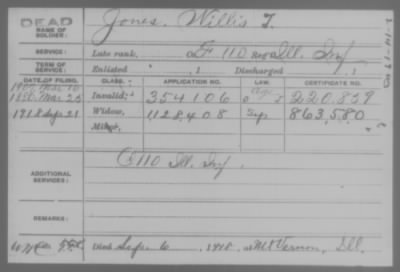 DEAD
NAME OF SOLDIER: Jones, Willis T.
SERVICE: Late rank, F 110 Reg't Ill. Inf
TERM OF SERVICE: Enlisted , 1 Discharged , 1
DATE OF FILING. CLASS. APPLICATION NO. LAW. CERTIFICATE NO.
Invalid, 354106 220.839
Widow, 1128408 Sep 863,580
1918 Sep 21
Minor,
ADDITIONAL SERVICES: G 110 Ill. Inf.
REMARKS:
Died Sep. 6, 1918, at Mt Vernon, Ill.